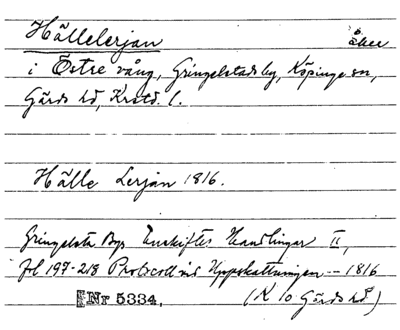 Hällelerjan åker
i Östre vång, Gringelstads by, Köpinge sn,
Gärds hd, Krstd. l.
Hälle Lerjan 1816.
Gringelsta Bys Enskiftes Handlingar II,
fol 197-218 Protocoll vid Uppskattningen - 1816
Nr 5334. (K 10 Gärds hd)